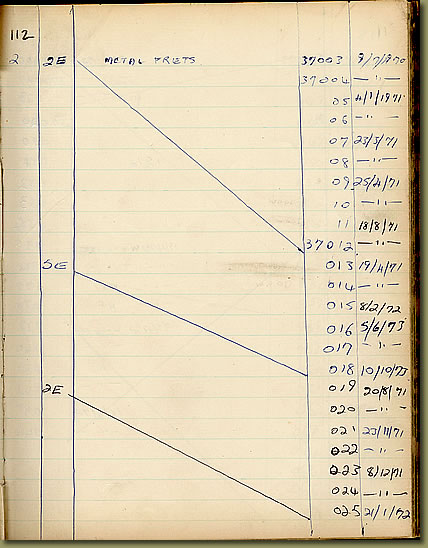 112
2 2E METAL FRETS 37003 9/7/1970
37004 — " —
05 4/1/1971
06 — " —
07 23/3/71
08 — " —
09 25/4/71
10 — " —
11 18/8/71
37012 — " —
5E 013 19/4/71
014 — " —
015 8/2/72
016 5/6/73
017 — " —
018 10/10/73
2E 019 20/8/71
020 — " —
021 23/11/71
022 — " —
023 8/12/71
024 — " —
025 21/1/72